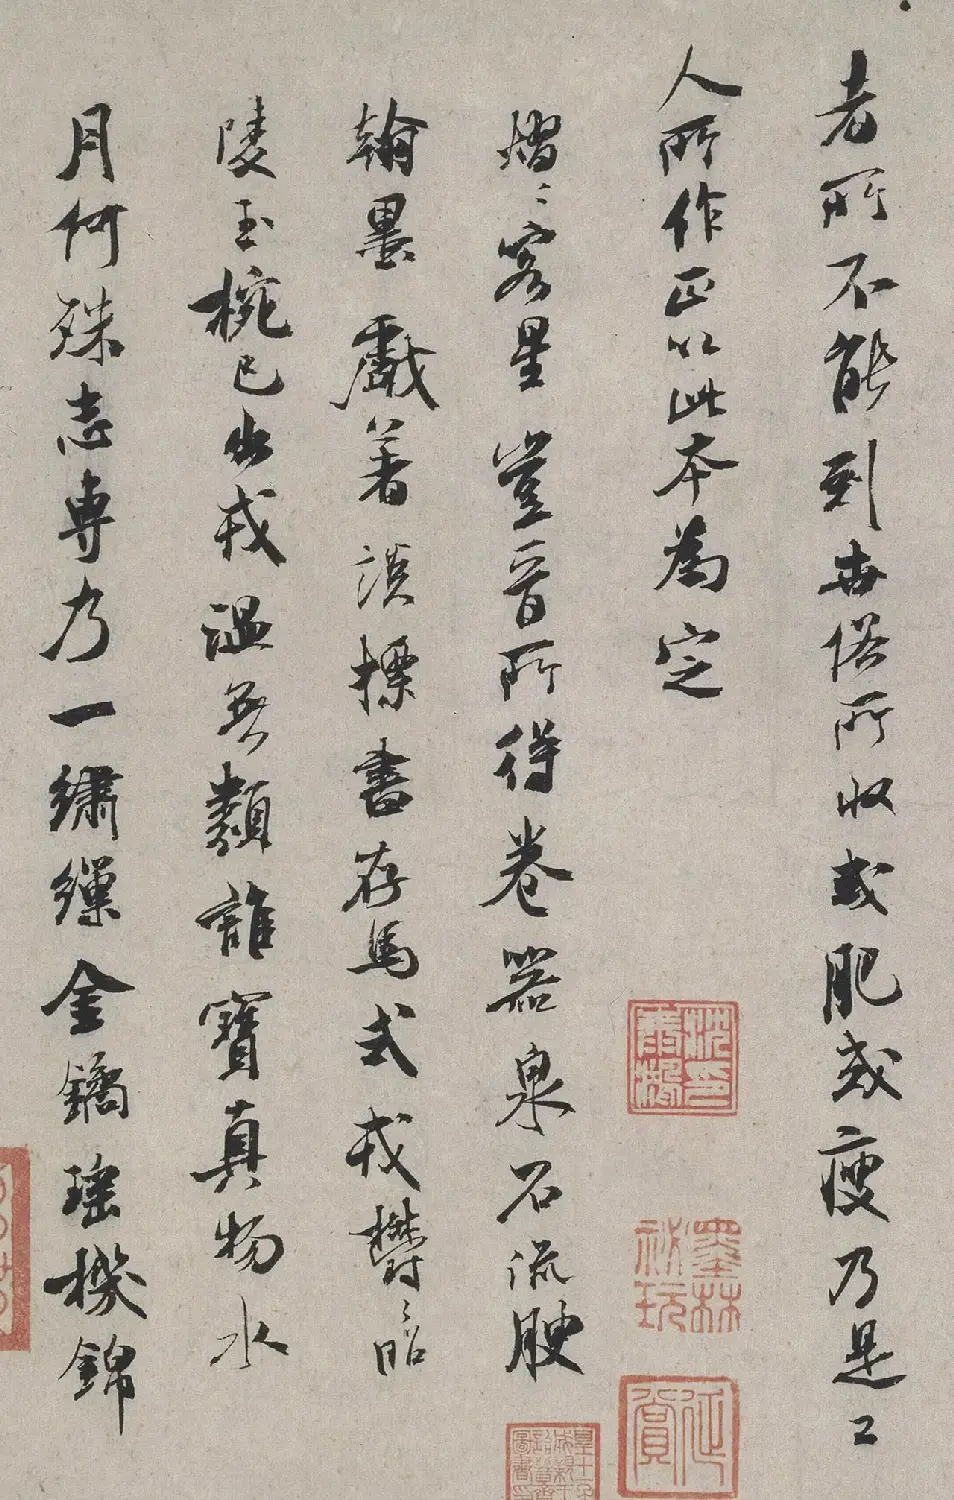 者所不能到世俗所收或肥或瘦乃是工
人所作正以此本為定
熠〻客星豈晉所得卷器泉石流腴
翰墨戲著談標書存馬式戎鬱〻昭
陵玉椀已出戎溫無類誰寶真物水
月何殊志專乃一繡繅金鐍瑤機錦
墨林
祕玩